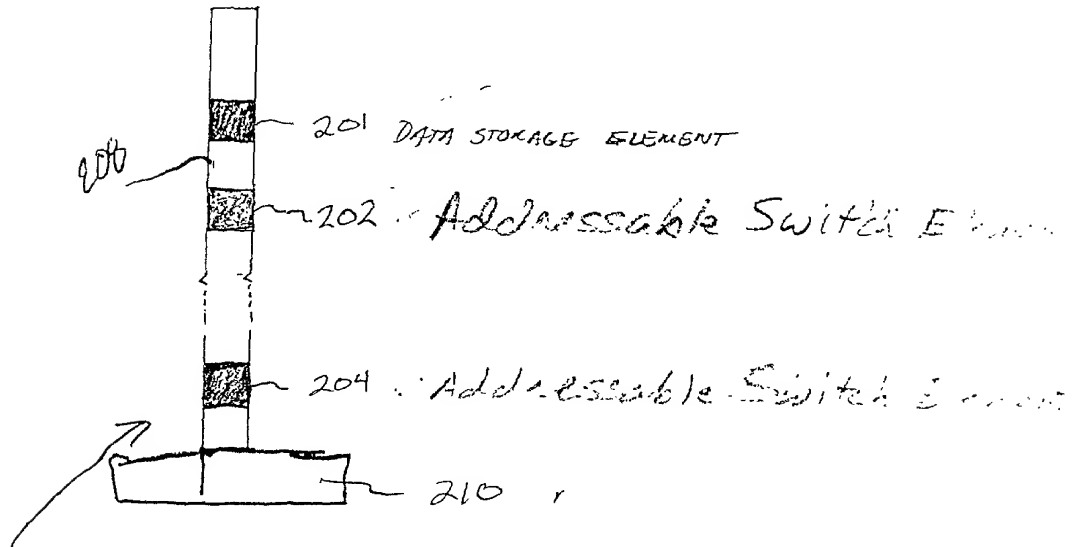 201 DATA STORAGE ELEMENT
202 Addressable Switch
204 Addressable Switch
210